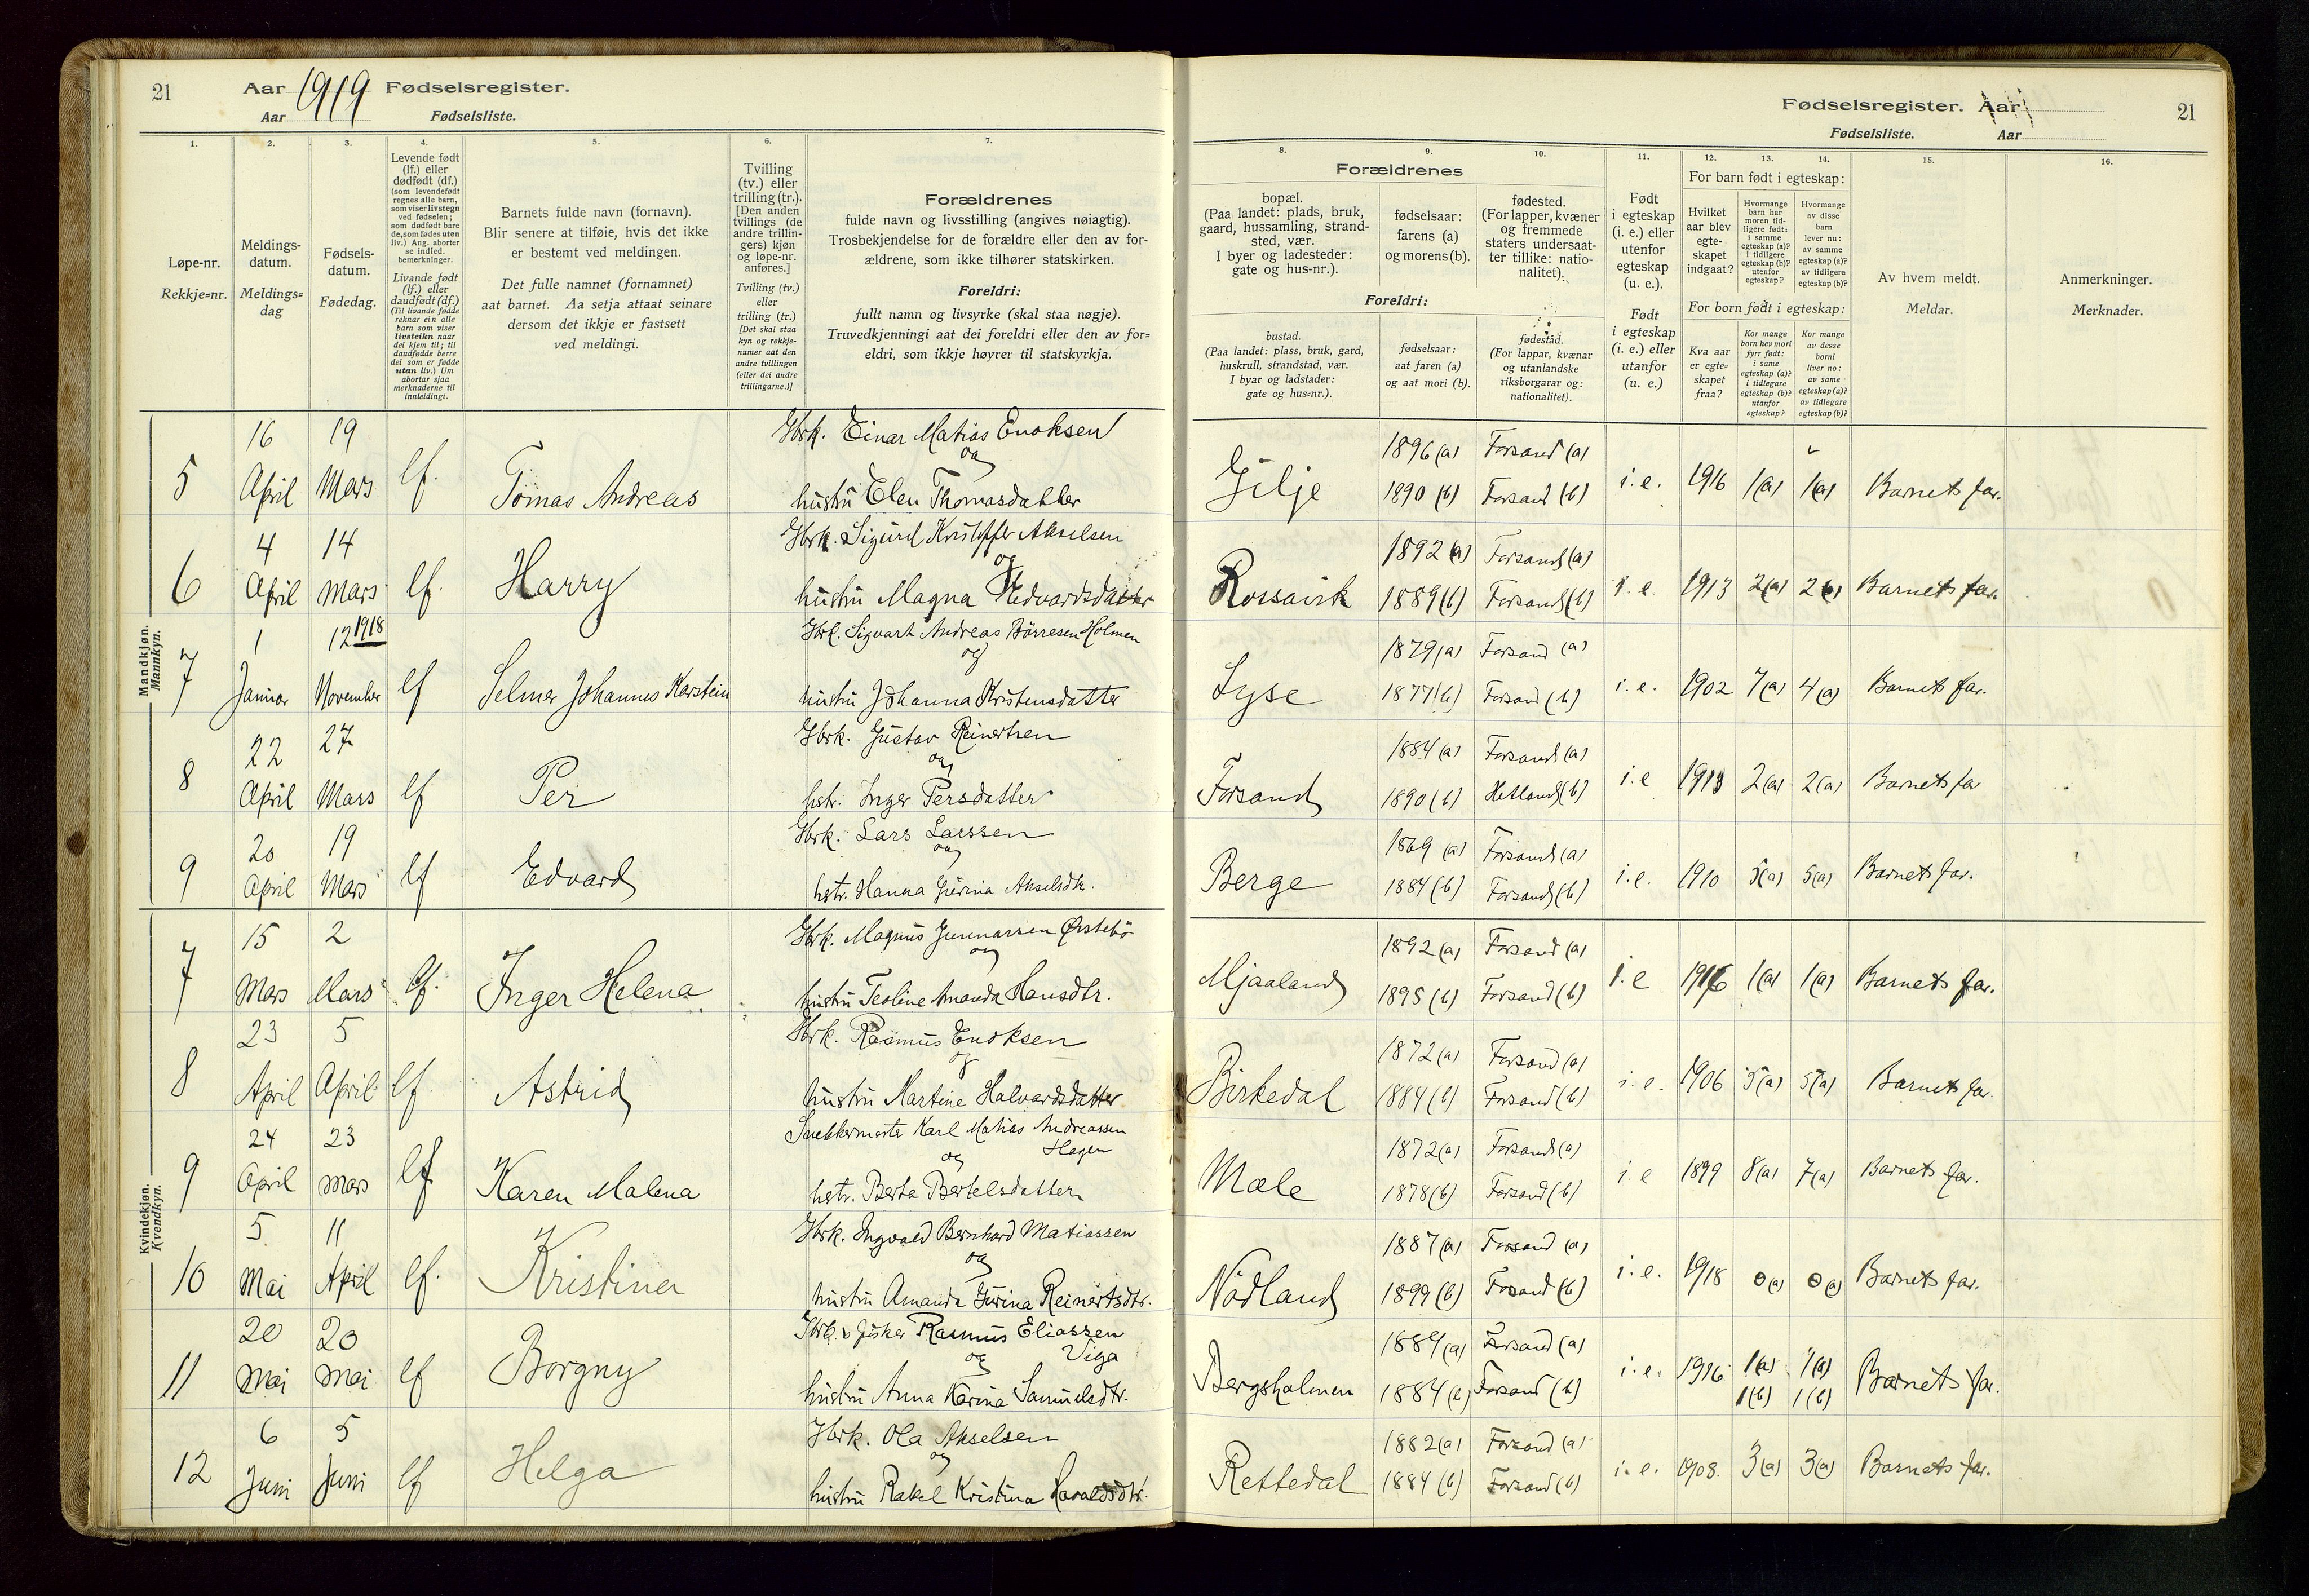 21 Aar 1919 Fødselsregister.
Aar Fødselsliste.
Fødselsregister. Aar 21
Fødselsliste. Aar
1. 2. 3. 4. 5. 6. 7.
Løpe-nr.
Rekkje=nr.
Meldings-
datum.
Meldings=
dag
Fødsels-
datum.
Fødedag.
Levende født
(lf.) eller
dødfødt (df.)
(som levendefødt
regnes alle barn,
som viser livstegn
ved fødselen;
som dødfødt bare
de, som fødes uten
liv.) Ang. aborter
se indled.
bemerkninger.
Livande født
(lf.) eller
daudfødt (df.)
(Til livande fødde
reknar ein alle
barn som viser
livsteikn naar
dei kjem til; til
daudfødde berre
dei som er fødde
utan liv.) Um
abortar sjaa
merknaderne til
innleidingi.
Barnets fulde navn (fornavn).
Blir senere at tilføie, hvis det ikke
er bestemt ved meldingen.
Det fulle namnet (fornamnet)
aat barnet. Aa setja attaat seinare
dersom det ikkje er fastsett
ved meldingi.
Tvilling
(tv.) eller
trilling (tr.).
[Den anden
tvillings (de
andre trillin-
gers) kjøn
og løpe-nr.
anføres.]
Tvilling (tv.)
eller
trilling (tr.)
[Det skal staa
kyn og rekkje-
numer aat den
andre tvillingen
(eller dei andre
trillingarne.)]
Forældrenes
fulde navn og livsstilling (angives nøiagtig).
Trosbekjendelse for de forældre eller den av for-
ældrene, som ikke tilhører statskirken.
Foreldri:
fullt namn og livsyrke (skal staa nøgje).
Truvedkjenningi aat dei foreldri eller den av for=
eldri, som ikkje høyrer til statskyrkja.
8. 9. 10. 11. 12. 13. 14. 15. 16.
Forældrenes
bopæl.
(Paa landet: plads, bruk,
gaard, hussamling, strand-
sted, vær.
I byer og ladesteder:
gate og hus-nr.).
fødselsaar:
farens (a)
og morens (b).
fødested.
(For lapper, kvæner
og fremmede
staters undersaat-
ter tillike: natio-
nalitet).
Foreldri:
bustad.
(Paa landet: plass, bruk, gard,
huskrull, strandstad, vær.
I byar og ladstader:
gate og hus=nr.).
fødselsaar:
aat faren (a)
og aat mori (b).
fødestad.
(For lappar, kvænar
og utanlandske
riksborgarar og:
nationalitet).
Født
i egteskap
(i. e.) eller
utenfor
egteskap
(u. e.).
Født
i egteskap
(i. e.) eller
utanfor
(u. e.)
For barn født i egteskap:
Hvilket
aar blev
egte-
skapet
indgaat?
Hvormange
barn har
moren tid-
ligere født:
i samme
egteskap (a)?
i tidligere
egteskap (b)?
utenfor
egteskap?
Hvormange
av disse
barn
lever nu:
av samme
egteskap (a)?
av tidligere
egteskap (b)?
For born født i egteskap:
Kva aar
er egte=
skapet
fraa?
Kor mange
born hev mori
fyrr født:
i same
egteskap (a)?
i tidlegare
egteskap (b)?
utanfor
egteskap?
Kor mange
av desse
borni
liver no:
av same
egteskap (a)?
av tidlegare
egteskap (b)?
Av hvem meldt.
Meldar.
Anmerkninger.
Merknader.
Mandkjøn.
Mannkyn.
5 16 April 19 Mars lf. Tomas Andreas Gbrk. Einar Matias Enoksen
og
hustru Elen Thomasdatter
Gilje 1896 (a) 1890 (b) Forsand (a) Forsand (b) i. e. 1916 1(a) 1(a) Barnets far.
6 4 April 14 Mars lf. Harry Gbrk. Sigurd Kristoffer Akselsen
og
hustru Magna Hedvardsdatter
Rossavik 1892 (a) 1889 (b) Forsand (a) Forsand (b) i. e. 1913 2(a) 2(a) Barnets far.
7 1 Januar 12 1918 November lf Selmer Johannes Karstein Gbrk. Sigvart Andreas Børresen Holmen
og
hustru Johanna Kristensdatter
Lyse 1879 (a) 1877 (b) Forsand (a) Forsand (b) i. e. 1902 7(a) 4(a) Barnets far.
8 22 April 27 Mars lf Per Gbrk. Gustav Reinertsen
og
hstr. Inger Persdatter
Forsand 1884 (a) 1890 (b) Forsand (a) Hetland (b) i. e 1913 2(a) 2(a) Barnets fa
9 20 April 19 Mars lf Edvard Gbrk. Lars Larssen
og
hstr. Hanna Gurina Akselsdtr.
Berge 1869 (a) 1884 (b) Forsand (a) Forsand (b) i. e. 1910 5(a) 5(a) Barnets far.
Kvindekjøn.
Kvendkyn.
7 15 Mars 2 Mars lf. Inger Helena Gbrk. Magnus Gunnarsen Ørstebö
og
hustru Teoline Amanda Hansdtr.
Mjaaland 1892 (a) 1895 (b) Forsand (a) Forsand (b) i. e 1916 1(a) 1(a) Barnets far.
8 23 April 5 April lf. Astrid Gbrk. Rasmus Enoksen
og
hustru Martine Halvardsdatter
Birkedal 1872 (a) 1884 (b) Forsand (a) Forsand (b) i. e. 1906 5(a) 5(a) Barnets far.
9 24 April 23 Mars lf. Karen Malena Snekkermester Karl Matias Andreassen
Hagen
og
hstr. Berta Bertelsdatter
Mæle 1872 (a) 1878 (b) Forsand (a) Forsand (b) i. e 1899 8(a) 7(a) Barnets far.
10 5 Mai 11 April lf. Kristina Gbrk. Ingvald Bernhard Matiassen
og
hustru Amanda Gurina Reinertsdtr.
Nödland 1887 (a) 1899 (b) Forsand (a) Forsand (b) i. e. 1918 0(a) 0(a) Barnets far.
11 20 Mai 20 Mai lf Borgny Gbrk. o fisker Rasmus Eliassen
og Viga
hustru Anna Karina Samuelsdtr.
Bergsholmen 1889 (a) 1884 (b) Forsand (a) Forsand (b) i. e. 1916 1(a) 1(b) 1(a) 1(b) Barnets far.
12 6 Juni 5 Juni lf Helga Gbrk. Ola Akselsen
og
hustru Rakel Kristina Haraldsdtr.
Rettedal 1882 (a) 1884 (b) Forsand (a) Forsand (b) i. e. 1908. 3(a) 3(a) Barnets far.